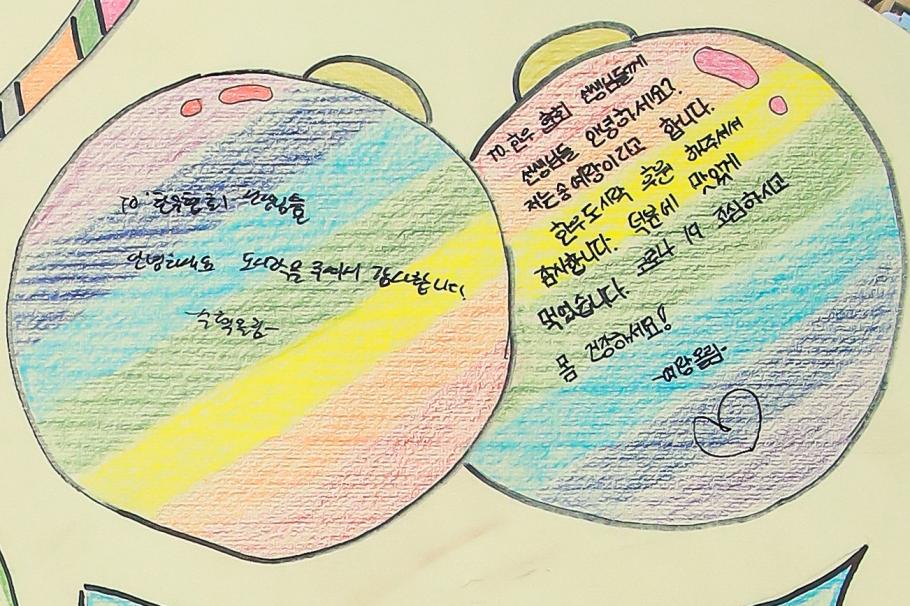 TO. 한우협회 선생님들
안녕하세요 도시락을 주셔서 감사합니다.
-수혁올림-
TO. 한우 협회 선생님들께
선생님들 안녕하세요?
저는 송여랑이라고 합니다.
한우도시락 후원 해주셔서
감사합니다. 덕분에 맛있게
먹었습니다. 코로나 19 조심하시고
몸 건강하세요!
-여랑 올림-